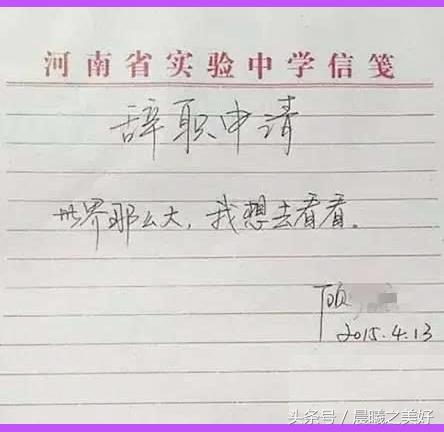 河南省实验中学信笺
辞职申请
世界那么大，我想去看看。
顾
2015.4.13
头条号／晨曦之美好